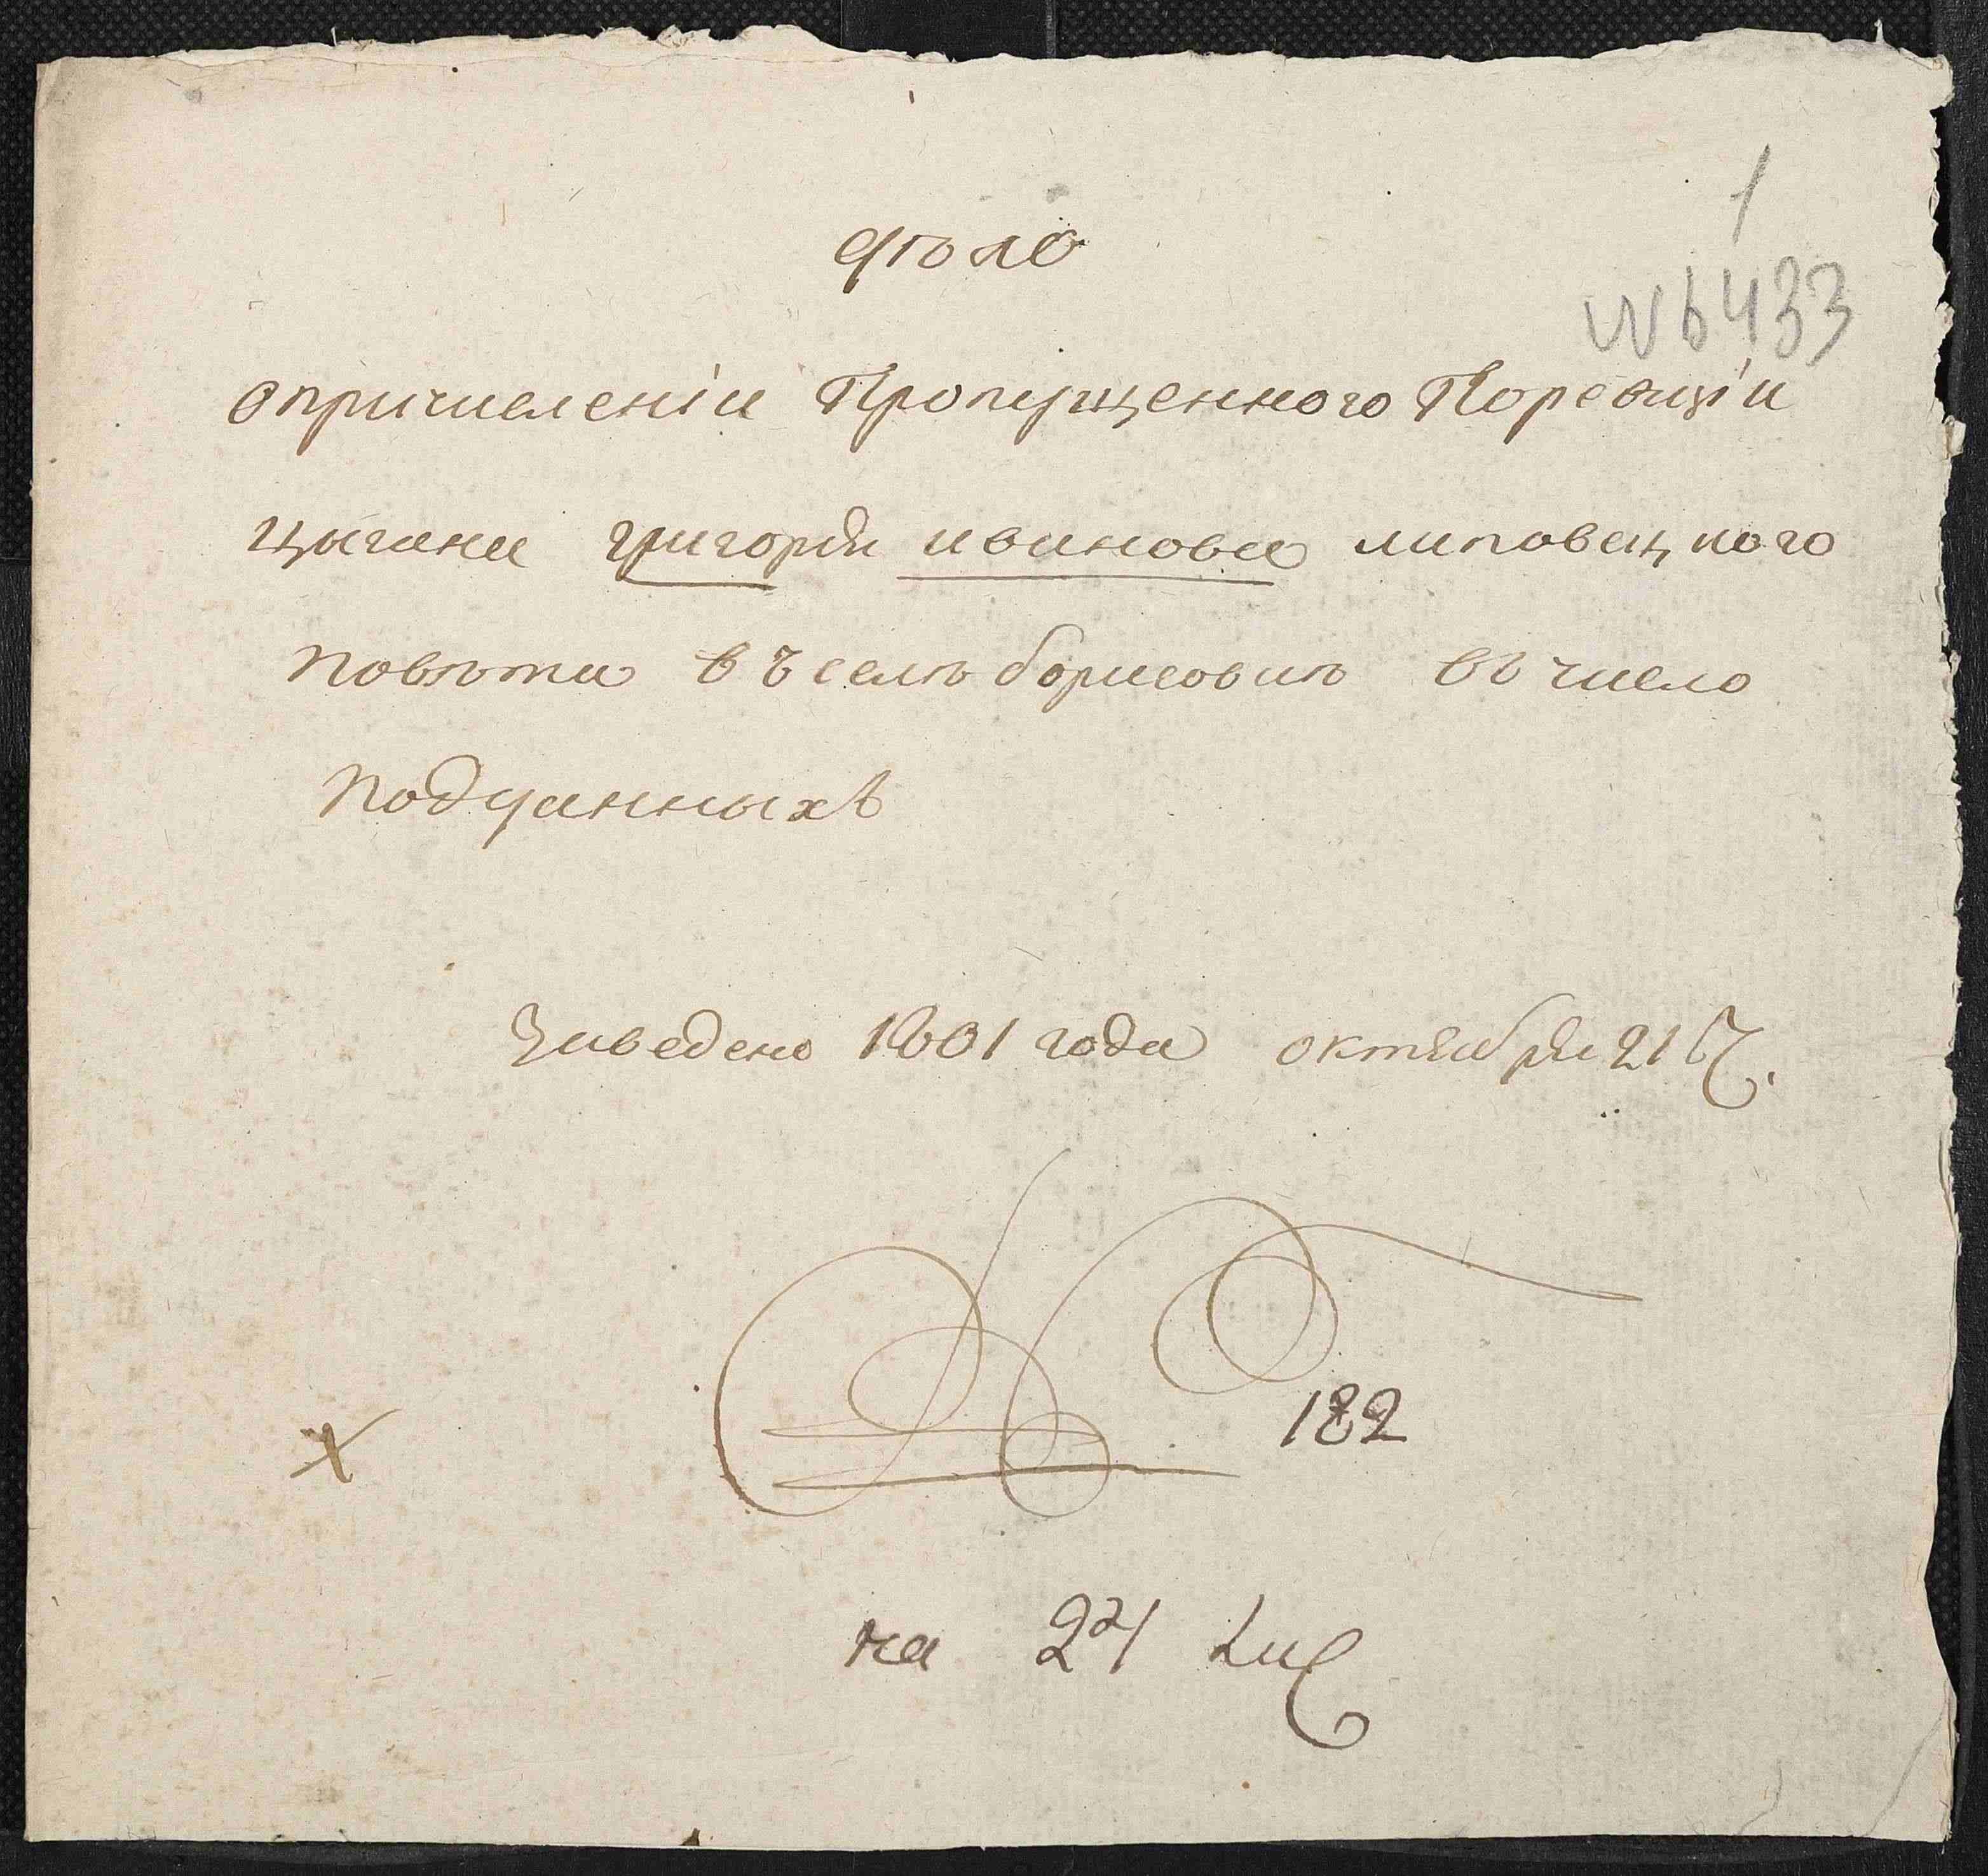 1
№ 6433
дѣло
опричислении Пропущенного Поревизіи
цыгана григорія иванова липовецкого
повѣта въ селѣ борисовкѣ въ число
Подданныхъ
Заведено 1801 года октября 21 Ч.
182
х
на 24 Лис